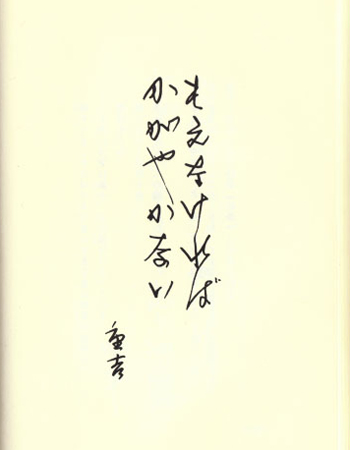 もえなければ
かがやかない
重吉